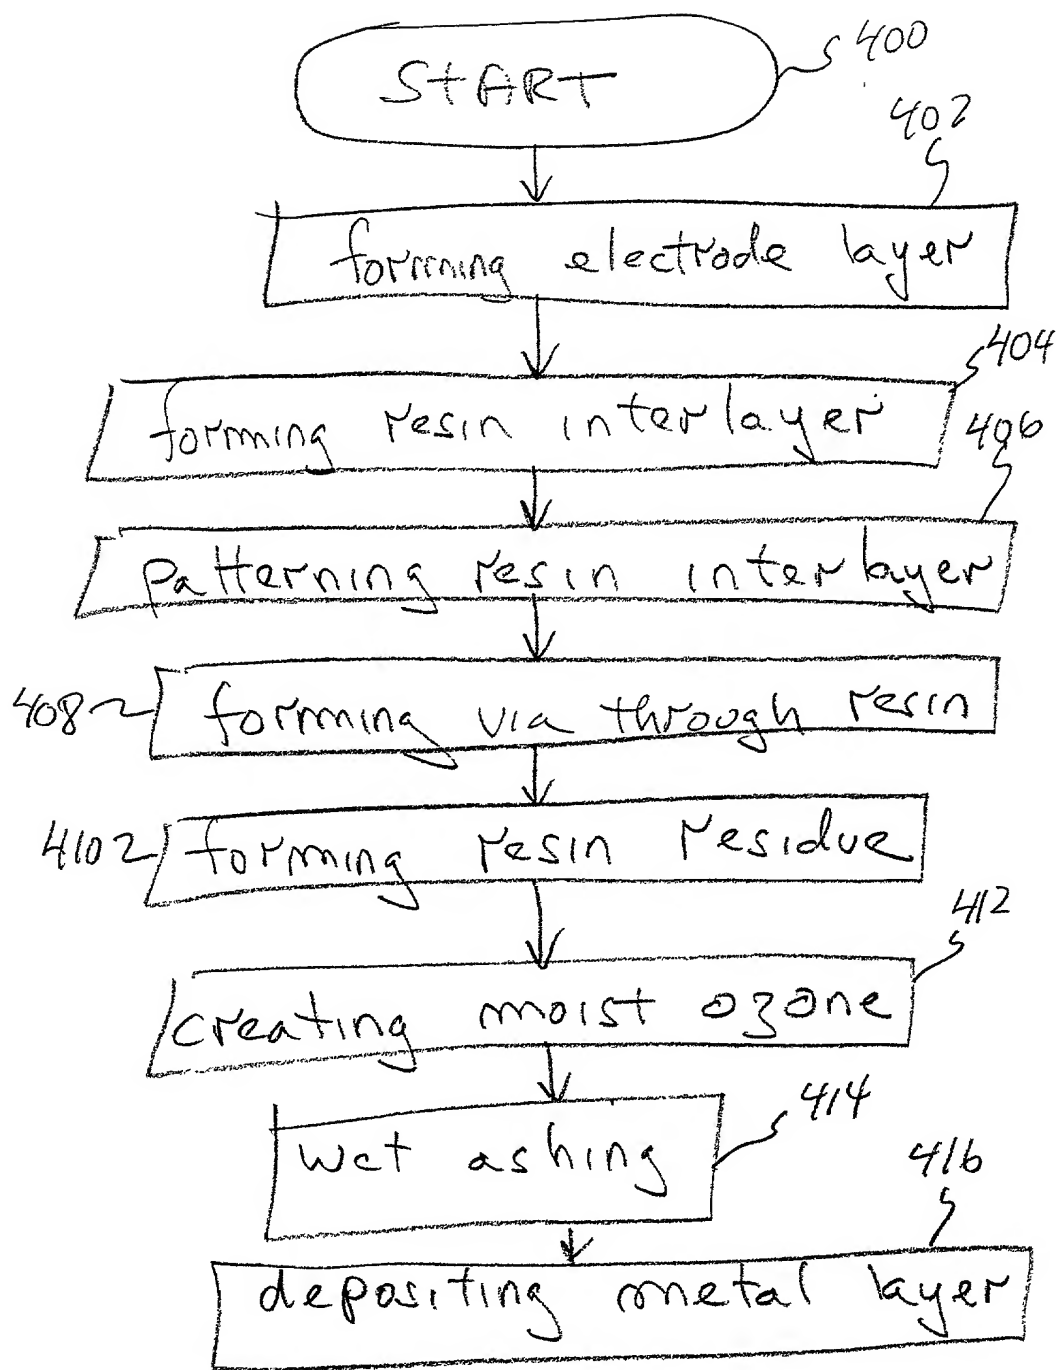 START
400
402
forming electrode layer
404
forming resin interlayer
406
patterning resin interlayer
408
forming via through resin
410
forming resin residue
412
creating moist ozone
414
wet ashing
416
depositing metal layer